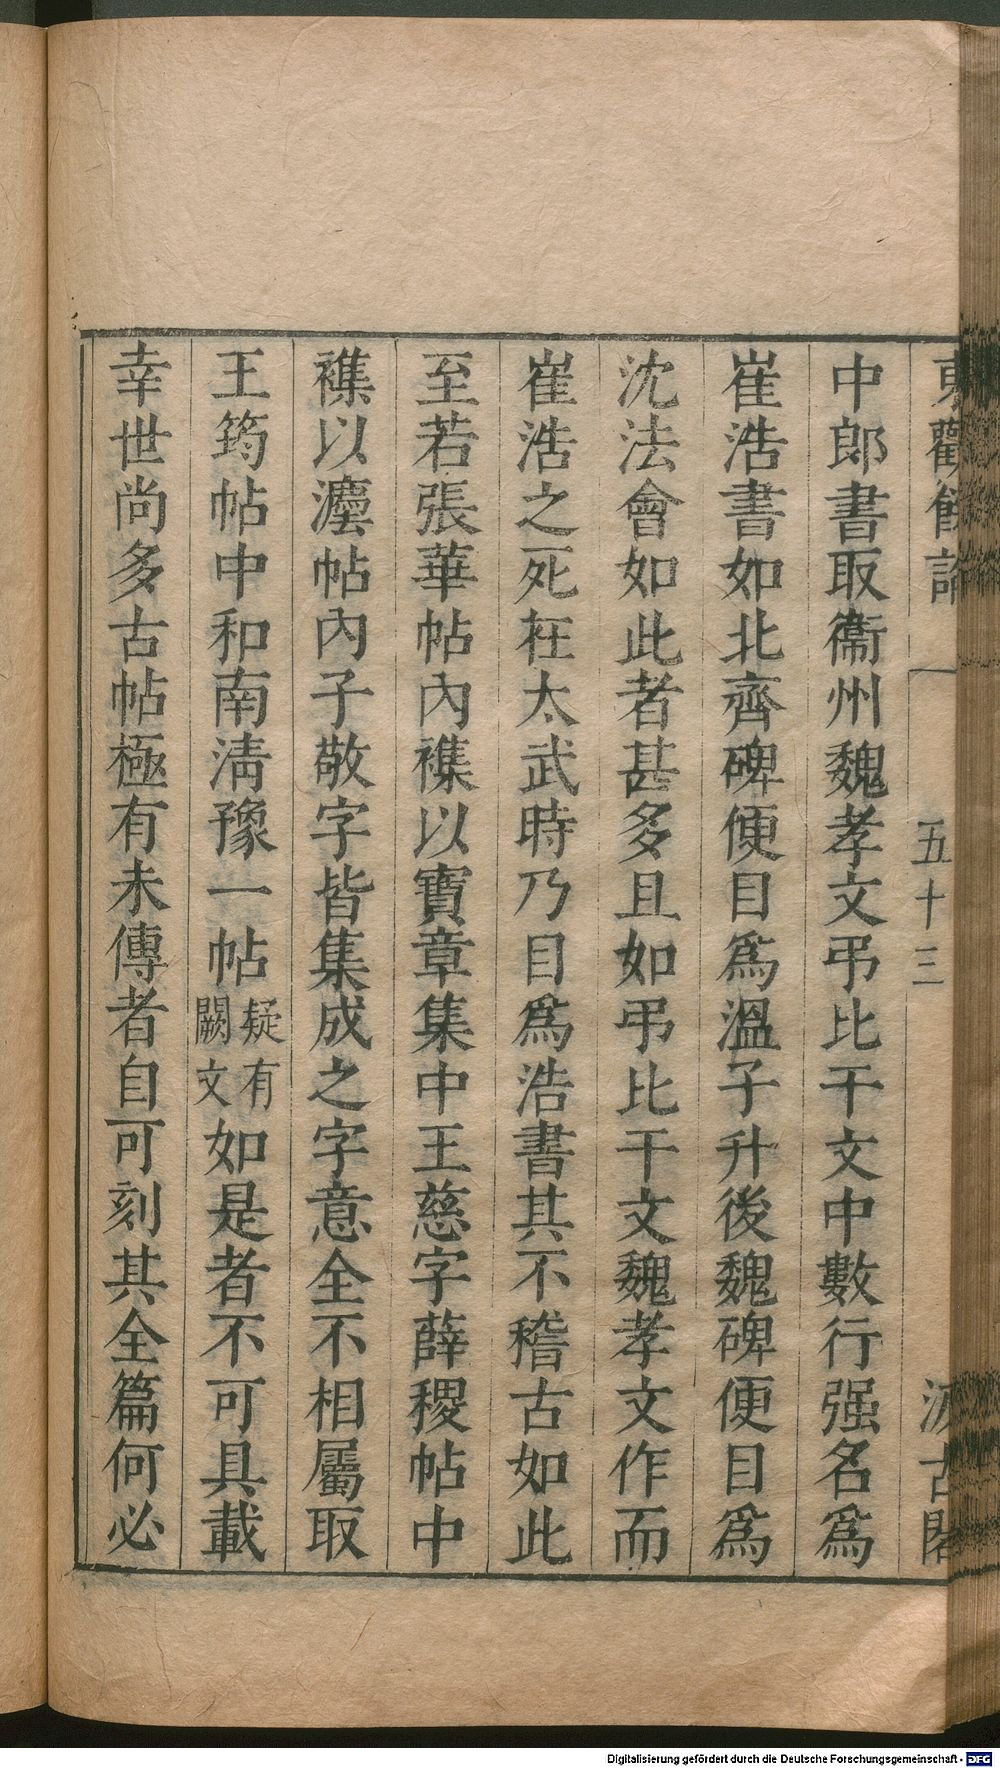 東觀餘論
五十三
汲古閣
中郎書取衞州魏孝文弔比干文中數行强名爲
崔浩書如北齊碑便目爲溫子升後魏碑便目爲
沈法會如此者甚多且如弔比干文魏孝文作而
崔浩之死在太武時乃目爲浩書其不稽古如此
至若張華帖內襍以寶章集中王慈字薛稷帖中
襍以瀍帖內子敬字皆集成之字意全不相屬取
王筠帖中和南淸豫一帖疑有闕文如是者不可具載
幸世尚多古帖極有未傳者自可刻其全篇何必
Digitalisierung gefördert durch die Deutsche Forschungsgemeinschaft - DFG